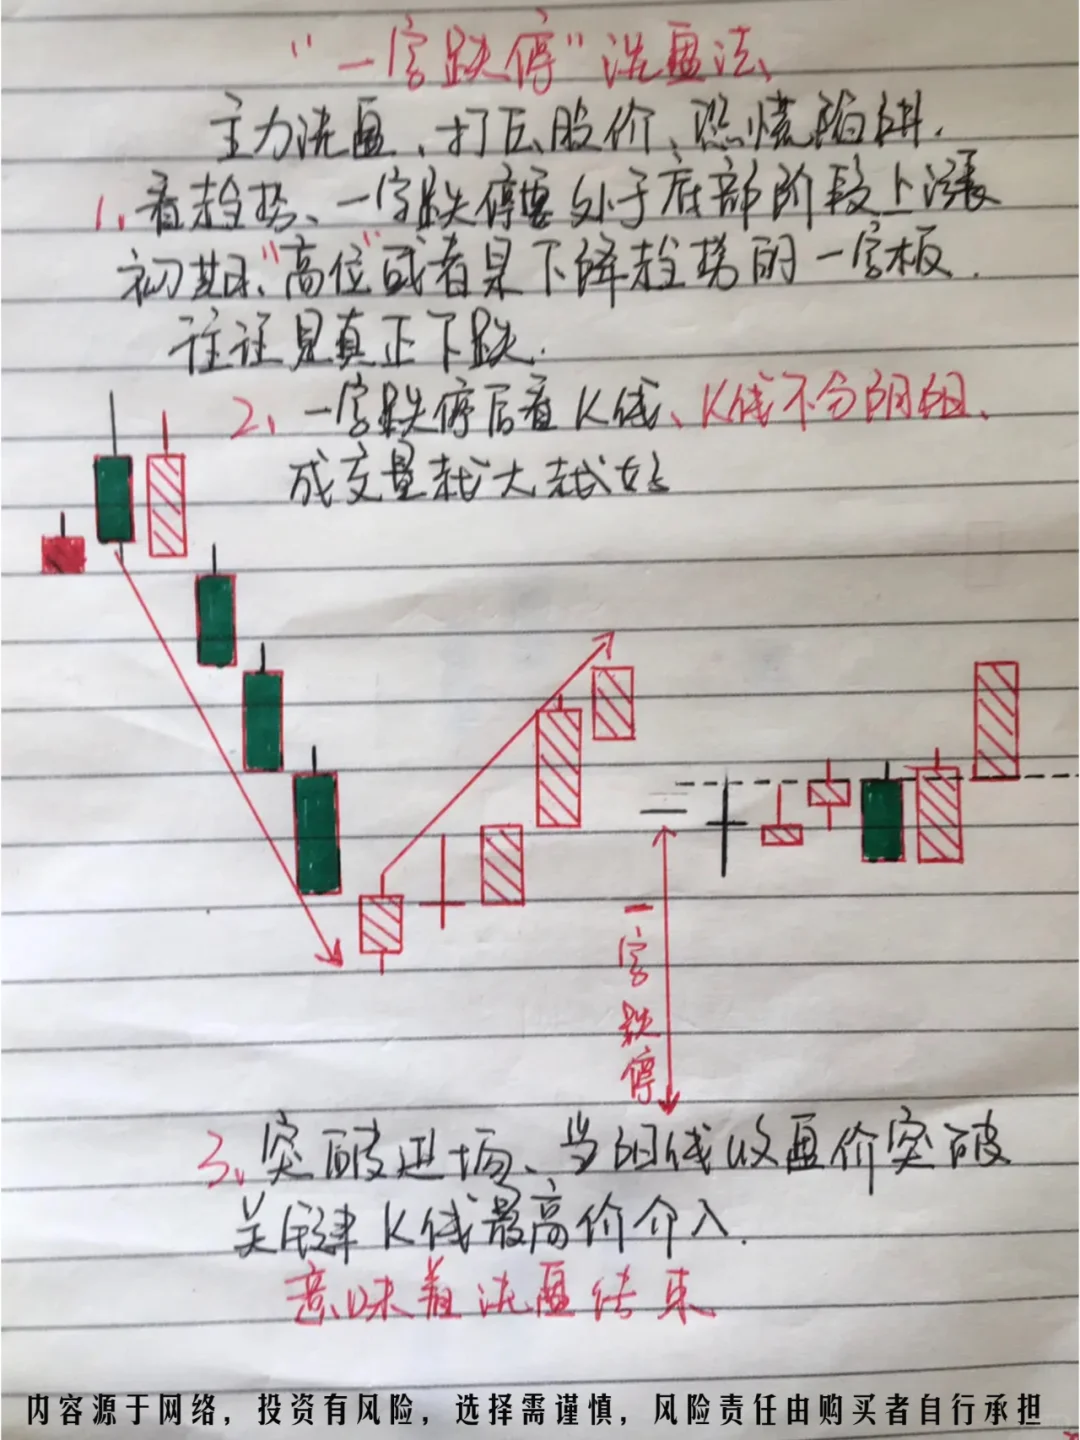 “一字跌停”洗盘法、
主力洗盘、打压股价、恐慌陷阱.
1、看趋势、一字跌停要处于底部阶段上涨
初期、“高位”或者是下降趋势的一字板.
往往是真正下跌.
2、一字跌停后看K线、K线不分阴阳、
成交量越大越好
一字跌停
3、突破进场、当阳线收盘价突破
关键K线最高价介入.
意味着洗盘结束
内容源于网络，投资有风险，选择需谨慎，风险责任由购买者自行承担